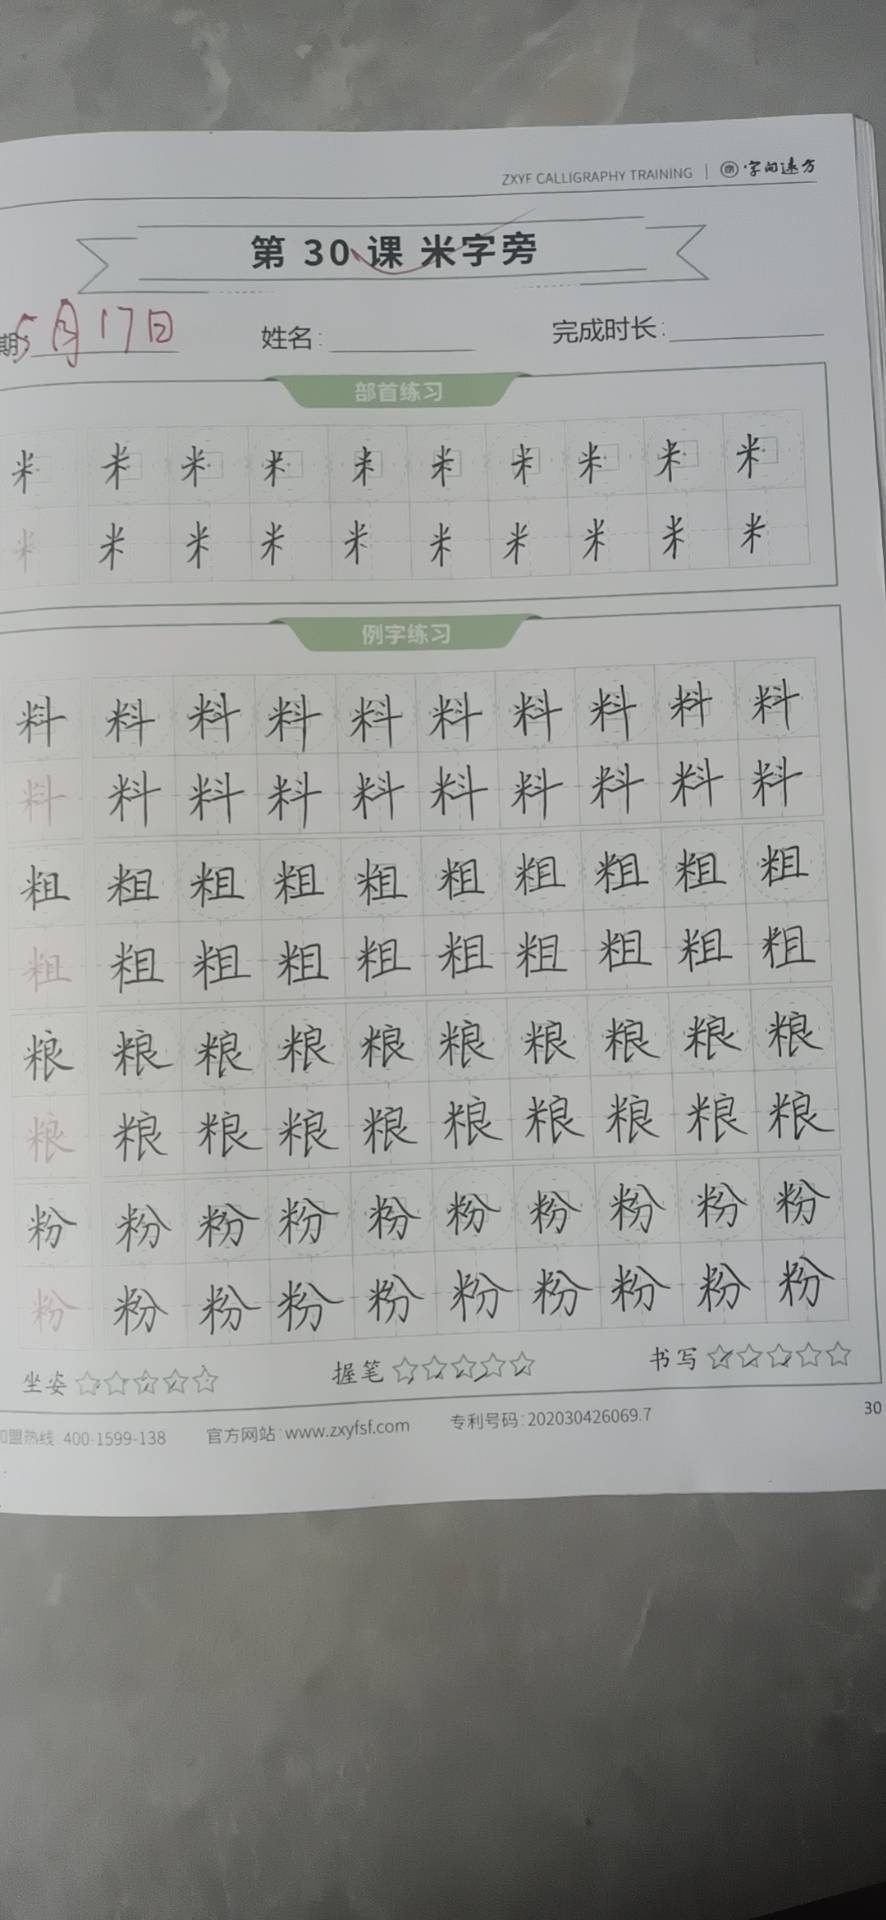 ZXYF CALLIGRAPHY TRAINING | 字间远方
第 30 课 米字旁
期 5月17日 姓名: 完成时长:
部首练习
米 米 米 米 米 米 米 米 米 米
米 米 米 米 米 米 米 米 米 米
例字练习
料 料 料 料 料 料 料 料 料 料
料 料 料 料 料 料 料 料 料 料
粗 粗 粗 粗 粗 粗 粗 粗 粗 粗
粗 粗 粗 粗 粗 粗 粗 粗 粗 粗
粮 粮 粮 粮 粮 粮 粮 粮 粮 粮
粮 粮 粮 粮 粮 粮 粮 粮 粮 粮
粉 粉 粉 粉 粉 粉 粉 粉 粉 粉
粉 粉 粉 粉 粉 粉 粉 粉 粉 粉
坐姿 ☆☆☆☆☆ 握笔 ☆☆☆☆☆ 书写 ☆☆☆☆☆
加盟热线: 400-1599-138 官方网站: www.zxyfsf.com 专利号码: 202030426069.7 30